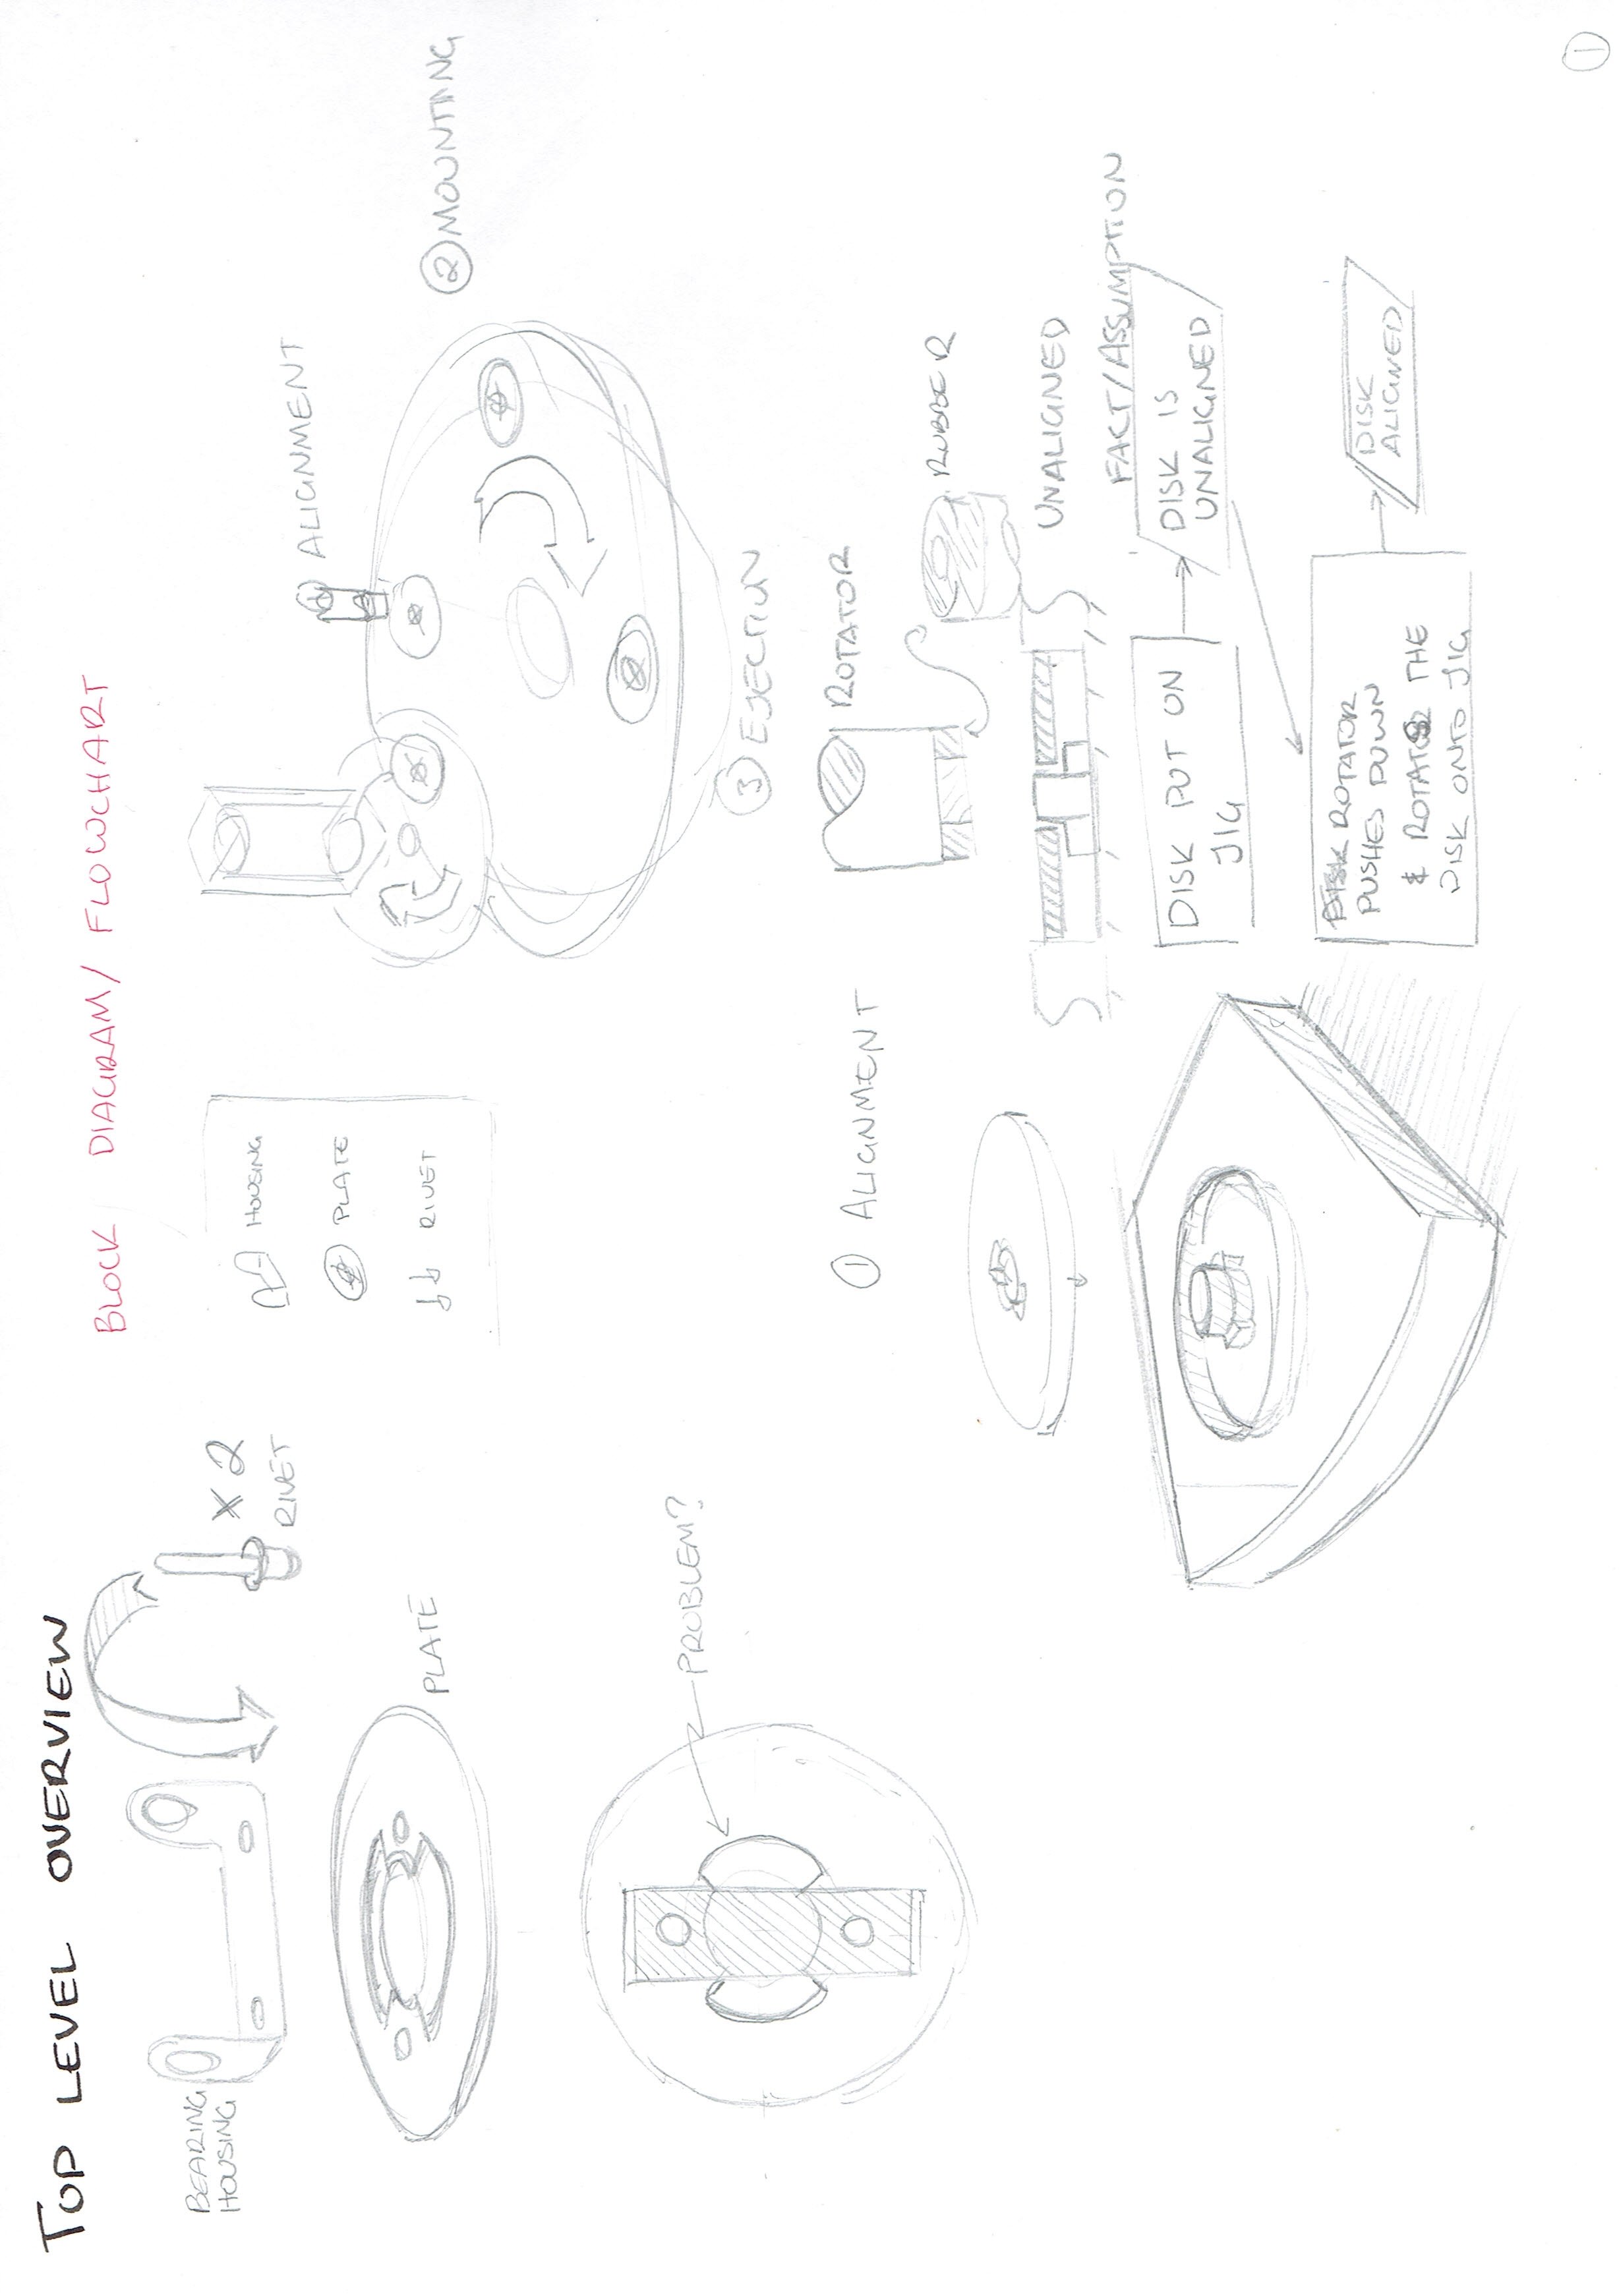 TOP LEVEL OVERVIEW
BLOCK DIAGRAM/ FLOWCHART
BEARING
HOUSING
X 2
RIVET
PLATE
PROBLEM?
HOUSING
PLATE
RIVET
1 ALIGNMENT
2 MOUNTING
3 EJECTION
1 ALIGNMENT
ROTATOR
RUBBER
UNALIGNED
FACT/ASSUMPTION
DISK PUT ON
JIG
DISK IS
UNALIGNED
ROTATOR
PUSHES DOWN
& ROTATES THE
DISK ONTO JIG
DISK
ALIGNED
1